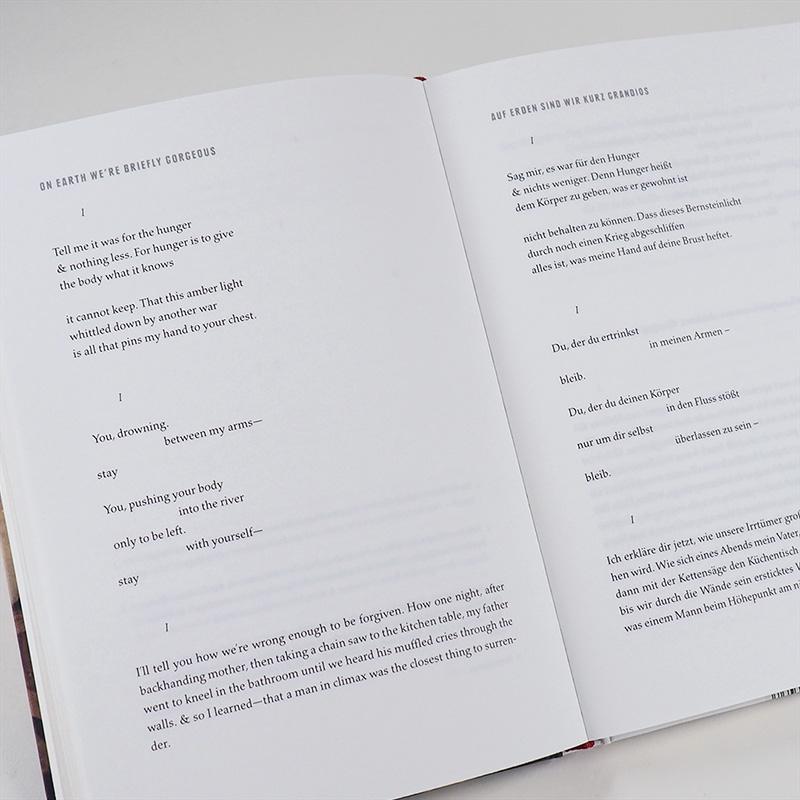 ON EARTH WE'RE BRIEFLY GORGEOUS
I
Tell me it was for the hunger
& nothing less. For hunger is to give
the body what it knows
it cannot keep. That this amber light
whittled down by another war
is all that pins my hand to your chest.
I
You, drowning.
between my arms—
stay
You, pushing your body
into the river
only to be left.
with yourself—
stay
I
I'll tell you how we're wrong enough to be forgiven. How one night, after
backhanding mother, then taking a chain saw to the kitchen table, my father
went to kneel in the bathroom until we heard his muffled cries through the
walls. & so I learned—that a man in climax was the closest thing to surren-
der.
AUF ERDEN SIND WIR KURZ GRANDIOS
I
Sag mir, es war für den Hunger
& nichts weniger. Denn Hunger heißt
dem Körper zu geben, was er gewohnt ist
nicht behalten zu können. Dass dieses Bernsteinlicht
durch noch einen Krieg abgeschliffen
alles ist, was meine Hand auf deine Brust heftet.
I
Du, der du ertrinkst
in meinen Armen –
bleib.
Du, der du deinen Körper
in den Fluss stößt
nur um dir selbst
überlassen zu sein –
bleib.
I
Ich erkläre dir jetzt, wie unsere Irrtümer
hen wird. Wie sich eines Abends mein Vater,
dann mit der Kettensäge den Küchentisch
bis wir durch die Wände sein ersticktes
was einem Mann beim Höhepunkt am